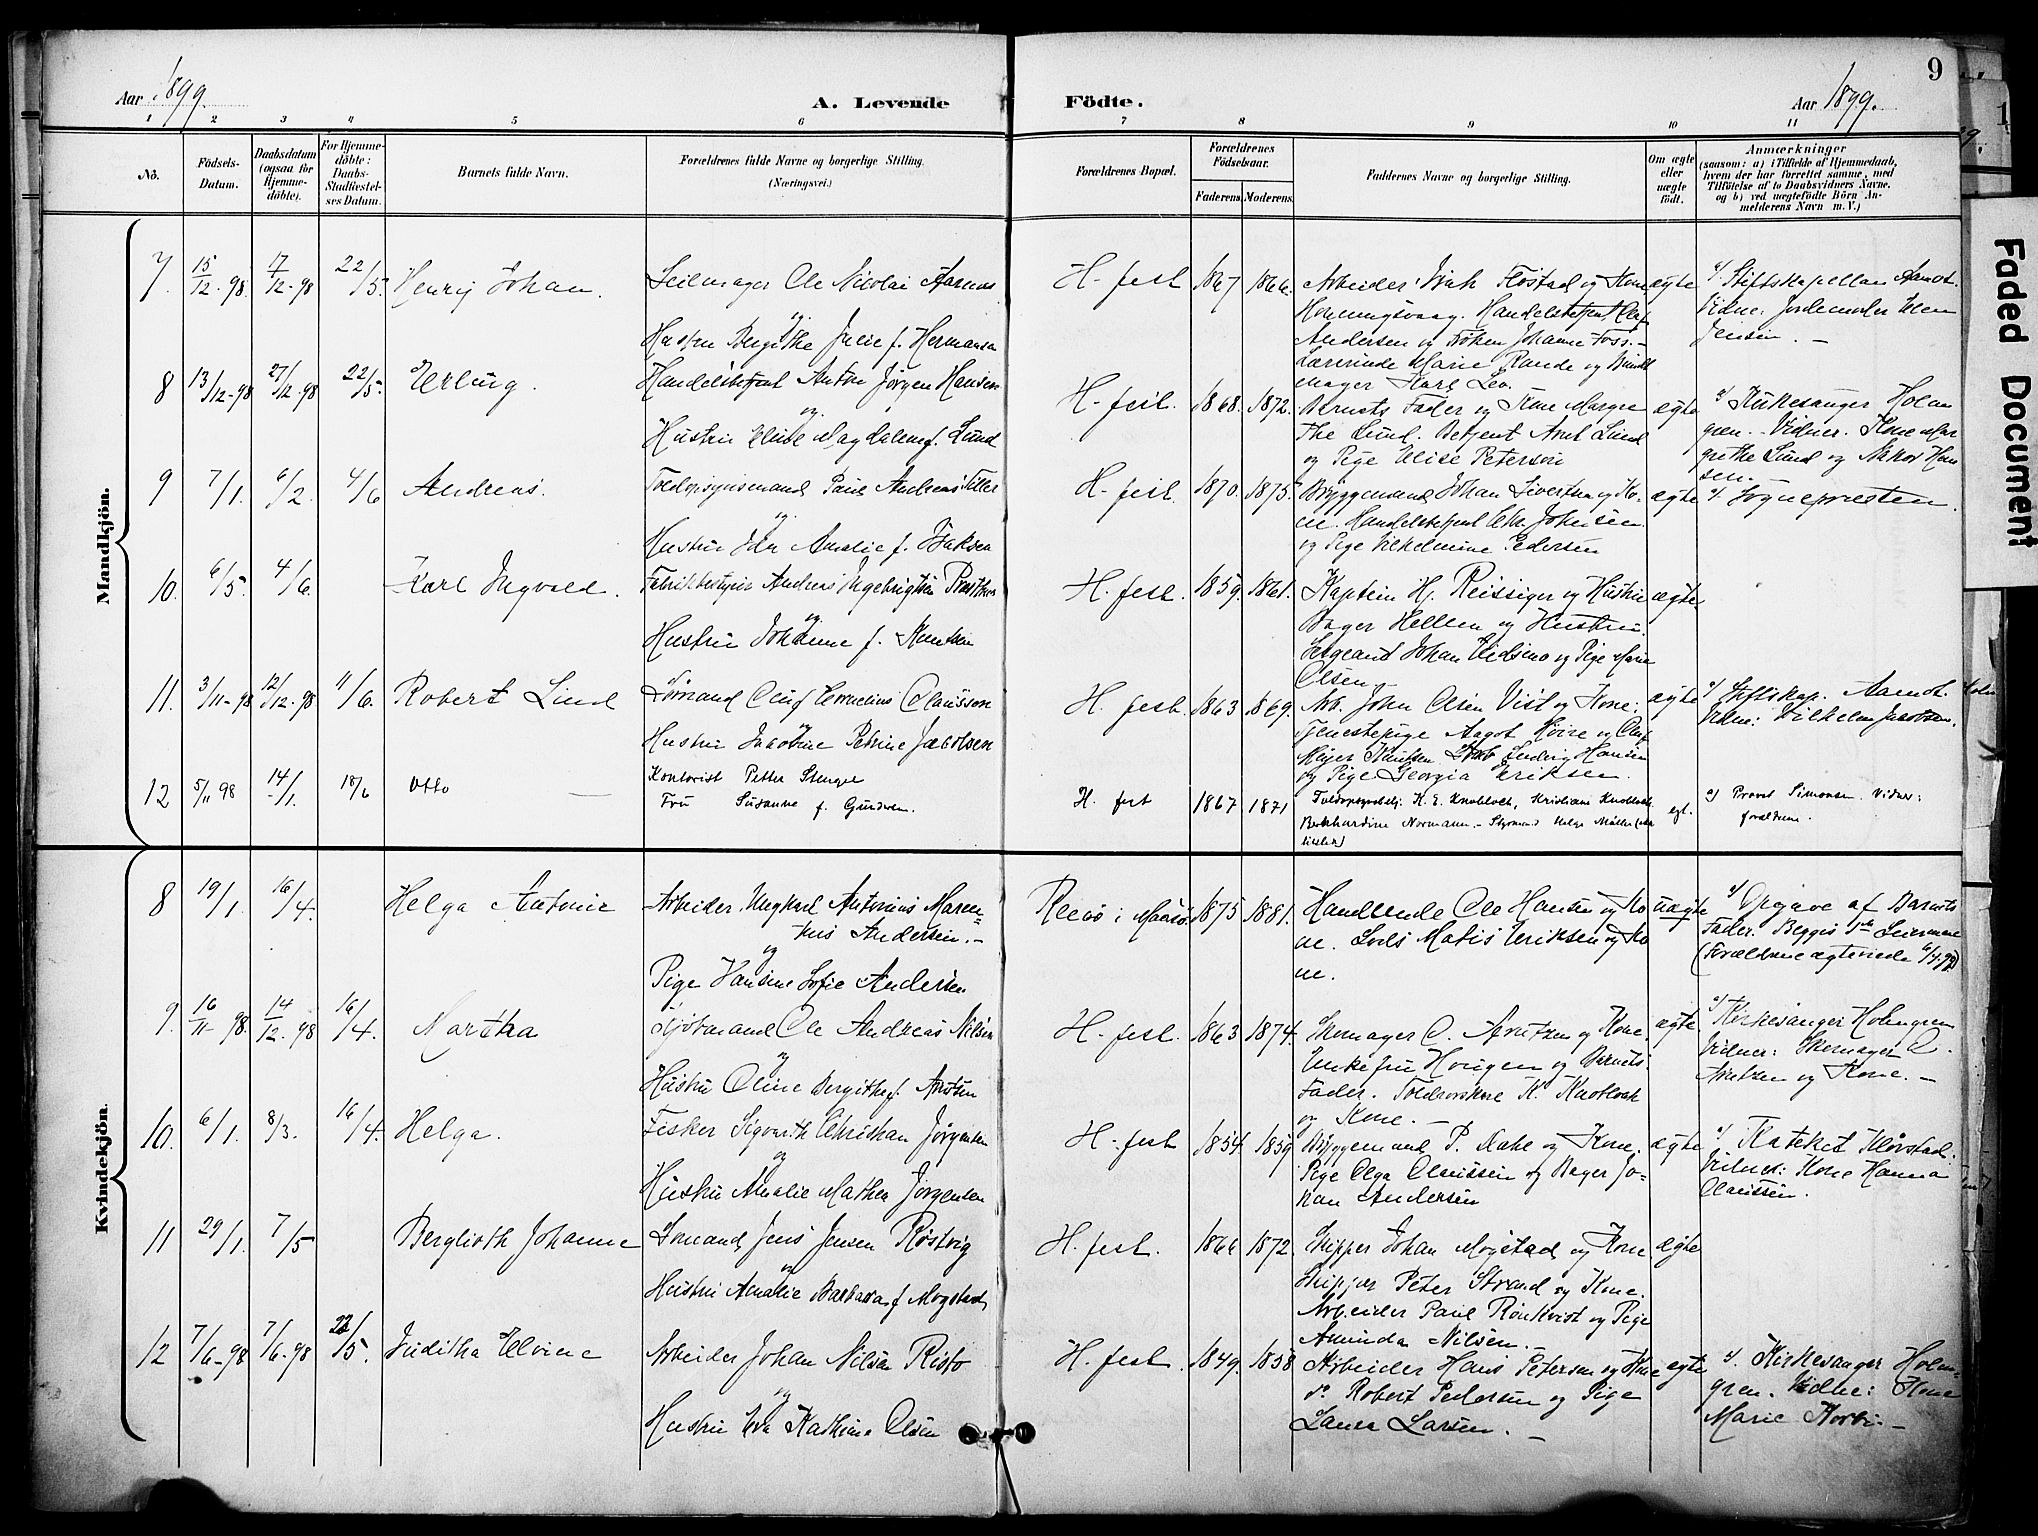 Aar 1899.
A. Levende
Födte.
Aar 1899.
9
1 2 3 4 5 6 7 8 9 10 11
No.
Födsels-
Datum.
Daabsdatum
(ogsaa for
Hjemme-
döbte).
For Hjemme-
döbte:
Daabs-
Stadfæstel-
ses Datum.
Barnets fulde Navn.
Forældrenes fulde Navne og borgerlige Stilling.
(Næringsvei.)
Forældrenes Bopæl.
Forældrenes
Födselsaar.
Faderens. Moderens.
Faddernes Navne og borgerlige Stilling.
Om ægte
eller
uægte
født.
Anmærkninger
(saasom: a) i Tilfælde af Hjemmedaab,
hvem der har forrettet samme, med
Tilföielse af to Daabsvidners Navne.
og b) ved uægtefödte Börn An-
melderens Navn m. V.)
Mandkjön.
7. 15/12-98. 17/12-98 22/5. Henry Johan.
Seilmager Ole Nicolai Aarnes
og
Hustru Bergithe Julie f. Hermansen
H-fest 1867 1866.
Arbeider Flostad og Kone
Honningsvaag. Handelsbetjent Olaf
Andersen og Frøken Johanne Foss.-
Lærerinde Marie Rande og
mager Karl
ægte
a/ Stiftskapellan Aamot.
Vidne: Jordemoder Elen
Jensen. -
8 13/12-98 27/12-98 22/5. Erling.
Handelsbetjent Anton Jørgen Hansen
og
Hustru Elise Magdalene f. Lund
H-fest. 1868. 1872.
Barnets Fader og Kone Margre
the Lund. Betjent Lund
og Pige Elise Petersen
ægte
a/ Kirkesanger Holm
gren. - Vidner. Kone Mar
grethe Lund og Han
sen. -
9 7/1. 6/2. 4/6 Andreas.
Toldopsynsmand Paul Andreas Tiller
og
Hustru Ida Amalie f. Isaksen
H-fest. 1870. 1875.
Bryggemand Johan Sivertsen og Ko-
ne. Handelsbetjent Johnsen
og Pige Vilhelmine Pedersen
ægte
a/. Sognepresten.
10. 6/5. 4/6. Karl Ingvald.
Fabrikbestyrer Andreas Ingebrigtsen
og
Hustru Johanne f. Knutsen
H. fest. 1859. 1861.
Kaptein Hj. Reissiger og Hustru
Bager Hellen og Hustru.
Sergeant Johan Eidsmo og Pige Marie
Olsen
ægte
11. 3/11-98 12/12-98 11/6. Robert Lind
Sømand Oluf Cornelius Olaussen
og
Hustru Jakobine Petrine Jacobsen
H. fest. 1863 1869.
Arb. John Olsen Vist og Kone.
Tjenestepige Aagot Høire og Oluf
Meyer Knutsen Ludvig Hansen
og Pige Georgia Eriksen.
ægte
a/ Stiftskap. Aamot.
Vidne: Wilhelm Jacobsen.
12 5/11 98 14/1. 18/6 Otto
Kontorist Petter Stenger
Fru Susanne f. Gundersen.
H. fest 1867 1871
Toldopsynsbetj. K. E. Knobloch, Kristiane Knobloch
Bernhardine Normann. - Styrmand Helge Müller
egt.
a) Provst Simonsen. Vidner:
forældrene.
Kvindekjön.
8 19/1. 16/4. Helga Antonie
Arbeider Ungkarl Antonius Maren-
tius Andersen. -
og
Pige Hansine Sofie Andersen
i Maasø. 1875 1881.
Handlende Ole Hansen og Ko
ne. Lods Matis Eriksen og Ko
ne.
uægte
a/ Opgave af Barnets
Fader. Begges 1ste Leiermaal
(Forældrene ægteviede 6/4-99)
9. 16/11 98. 14/12-98 16/4. Martha
Sjømand Ole Andreas Nilsen
og
Hustru Oline Bergithe f. Arntsen
H. fest. 1863 1874.
Skomager O. Arntzen og Kone
Enkefru Hougen og Barnets
Fader. Toldroerskar K. Knobloch
og Kone. -
ægte
a/ Kirkesanger Holmgren
Vidner: Skomager O.
Arntzen og Kone. -
10. 6/1. 8/3. 16/4. Helga.
Fisker Sigvarth Christian Jørgensen
og
Hustru Amalie Mathea Jørgensen
H. fest 1854. 1859
Bryggemand P. Dahl og Kone.
Pige Olga Olaussen og Bager Jo-
han Andersen
ægte
a/ Kateket Klovstad.
Vidner: Kone Hanna
Olaussen.
11 29/1. 7/5 Berglioth Johanne
Sømand Jens Jensen Røstvig
og
Hustru Amalie Barbara f. Mogstad
H. fest. 1866 1872.
Skipper Johan Mogstad og Kone
Skipper Peter Strand og Kone.
Arbeider Paul Rönkvist og Pige
Aminda Nilsen. -
ægte
12 7/6-98 7/6-98 22/5. Juditha Elvine
Arbeider Johan Nilsen Risto
og
Hustru Eva Kathrine Olsen
H. fest. 1849. 1858
Arbeider Hans Petersen og Kone
do Robert Pedersen og Pige
Laura Larsen. -
ægte
a/. Kirkesanger Holm-
gren. Vidne: Kone
Marie -
Faded Document